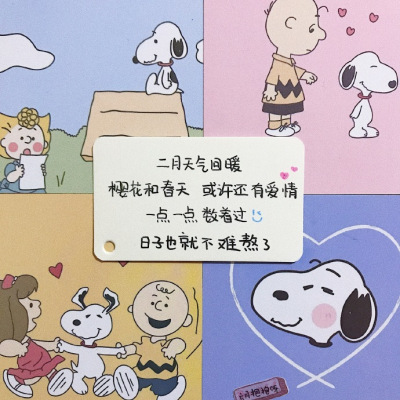 二月天气回暖
樱花和春天 或许还有爱情
一点一点 数着过
日子也就不难熬了